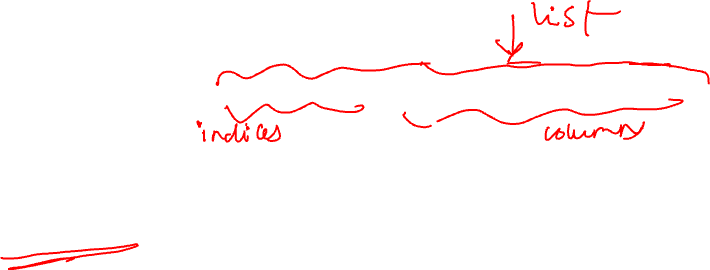 list
indices columns